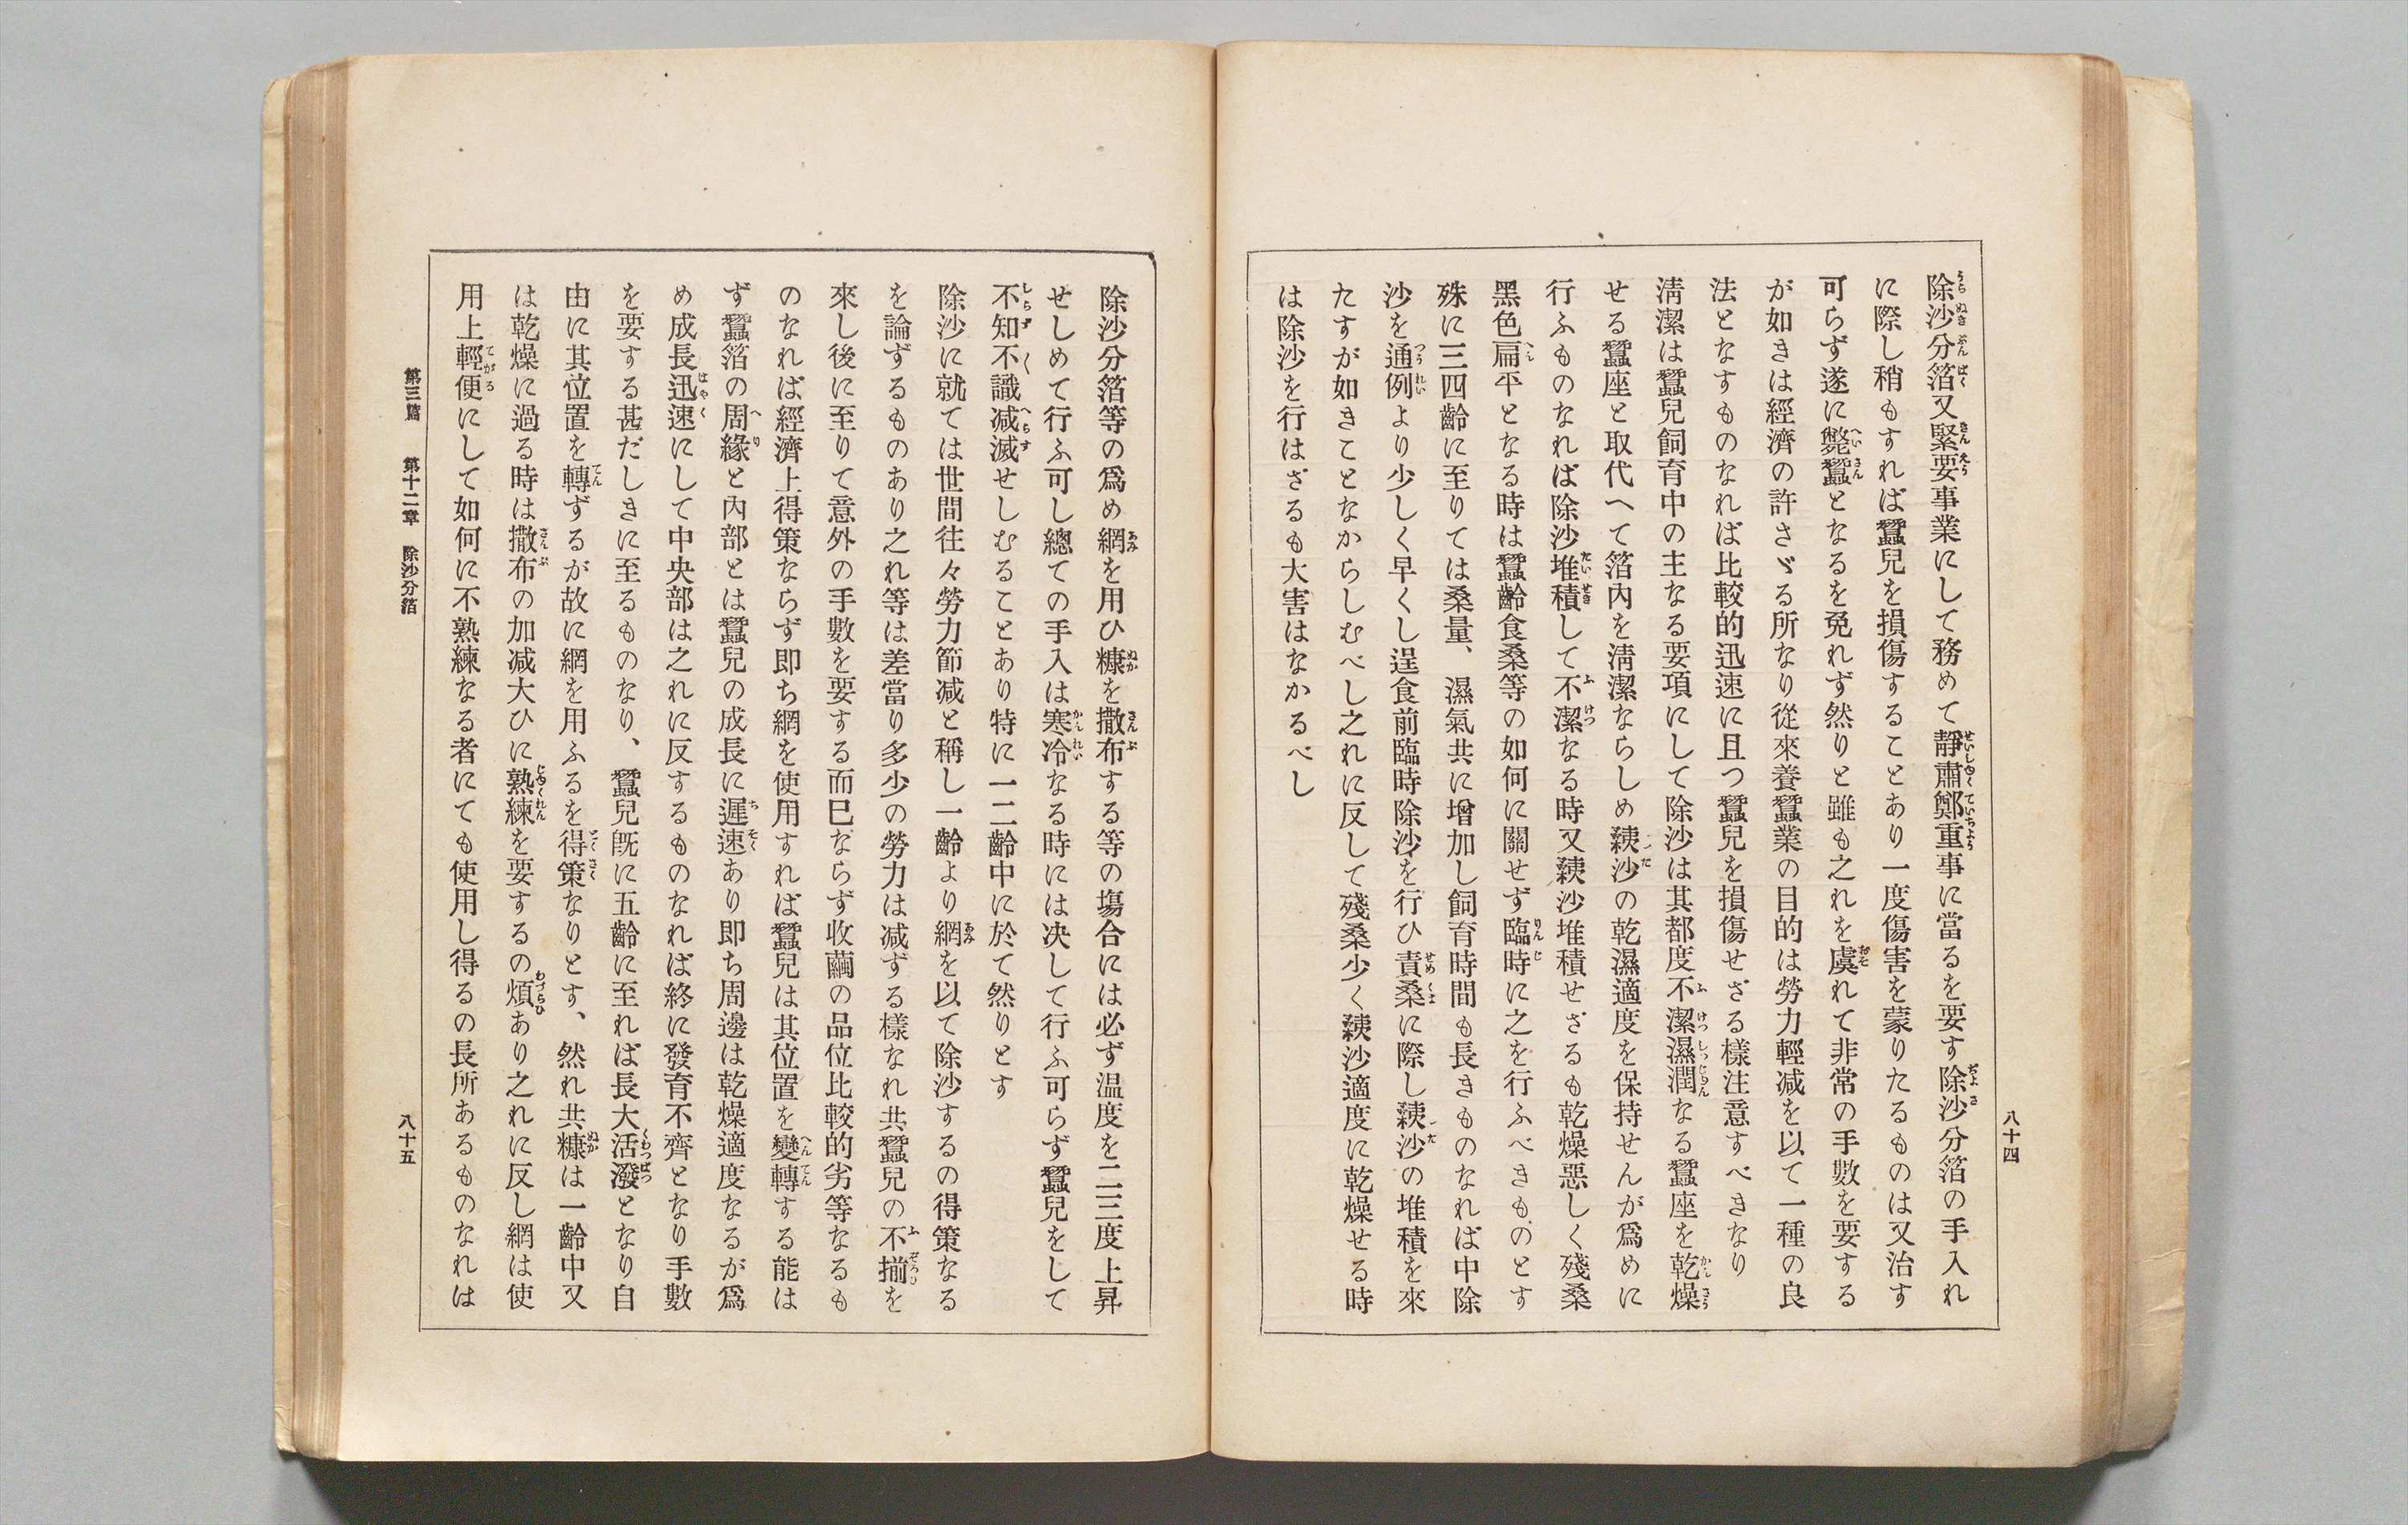 八十四
除沙分箔又緊要事業にして務めて靜肅鄭重事に當るを要す除沙分箔の手入れ
に際し稍もすれば蠶兒を損傷することあり一度傷害を蒙りたるものは又治す
可らず遂に斃蠶となるを免れず然りと雖も之れを虞れて非常の手數を要する
が如きは經濟の許さゞる所なり從來養蠶業の目的は勞力輕减を以て一種の良
法となすものなれば比較的迅速に且つ蠶兒を損傷せざる樣注意すべきなり
淸潔は蠶兒飼育中の主なる要項にして除沙は其都度不潔濕潤なる蠶座を乾燥
せる蠶座と取代へて箔內を淸潔ならしめ䗯沙の乾濕適度を保持せんが爲めに
行ふものなれば除沙堆積して不潔なる時又䗯沙堆積せざるも乾燥惡しく殘桑
黑色扁平となる時は蠶齡食桑等の如何に關せず臨時に之を行ふべきものとす
殊に三四齡に至りては桑量、濕氣共に增加し飼育時間も長きものなれば中除
沙を通例より少しく早くし逞食前臨時除沙を行ひ責桑に際し䗯沙の堆積を來
たすが如きことなからしむべし之れに反して殘桑少く䗯沙適度に乾燥せる時
は除沙を行はざるも大害はなかるべし
除沙分箔等の爲め網を用ひ糠を撒布する等の塲合には必ず温度を二三度上昇
せしめて行ふ可し總ての手入は寒冷なる時には决して行ふ可らず蠶兒をして
不知不識减滅せしむることあり特に一二齡中に於て然りとす
除沙に就ては世間往々勞力節减と稱し一齡より網を以て除沙するの得策なる
を論ずるものあり之れ等は差當り多少の勞力は减ずる樣なれ共蠶兒の不揃を
來し後に至りて意外の手數を要する而巳ならず收繭の品位比較的劣等なるも
のなれば經濟上得策ならず卽ち網を使用すれば蠶兒は其位置を變轉する能は
ず蠶箔の周緣と內部とは蠶兒の成長に遲速あり卽ち周邊は乾燥適度なるが爲
め成長迅速にして中央部は之れに反するものなれば終に發育不齊となり手數
を要する甚だしきに至るものなり、蠶兒旣に五齡に至れば長大活潑となり自
由に其位置を轉ずるが故に網を用ふるを得策なりとす、然れ共糠は一齡中又
は乾燥に過る時は撒布の加减大ひに熟練を要するの煩あり之れに反し網は使
用上輕便にして如何に不熟練なる者にても使用し得るの長所あるものなれは
第三篇　第十二章　除沙分箔
八十五